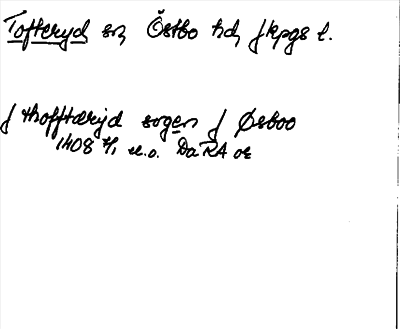 Tofteryd sn, Östbo hd, Jkpgs l.
J thofftæryd sogen J Øsboo
1408 4/1 u.o. DaRA or